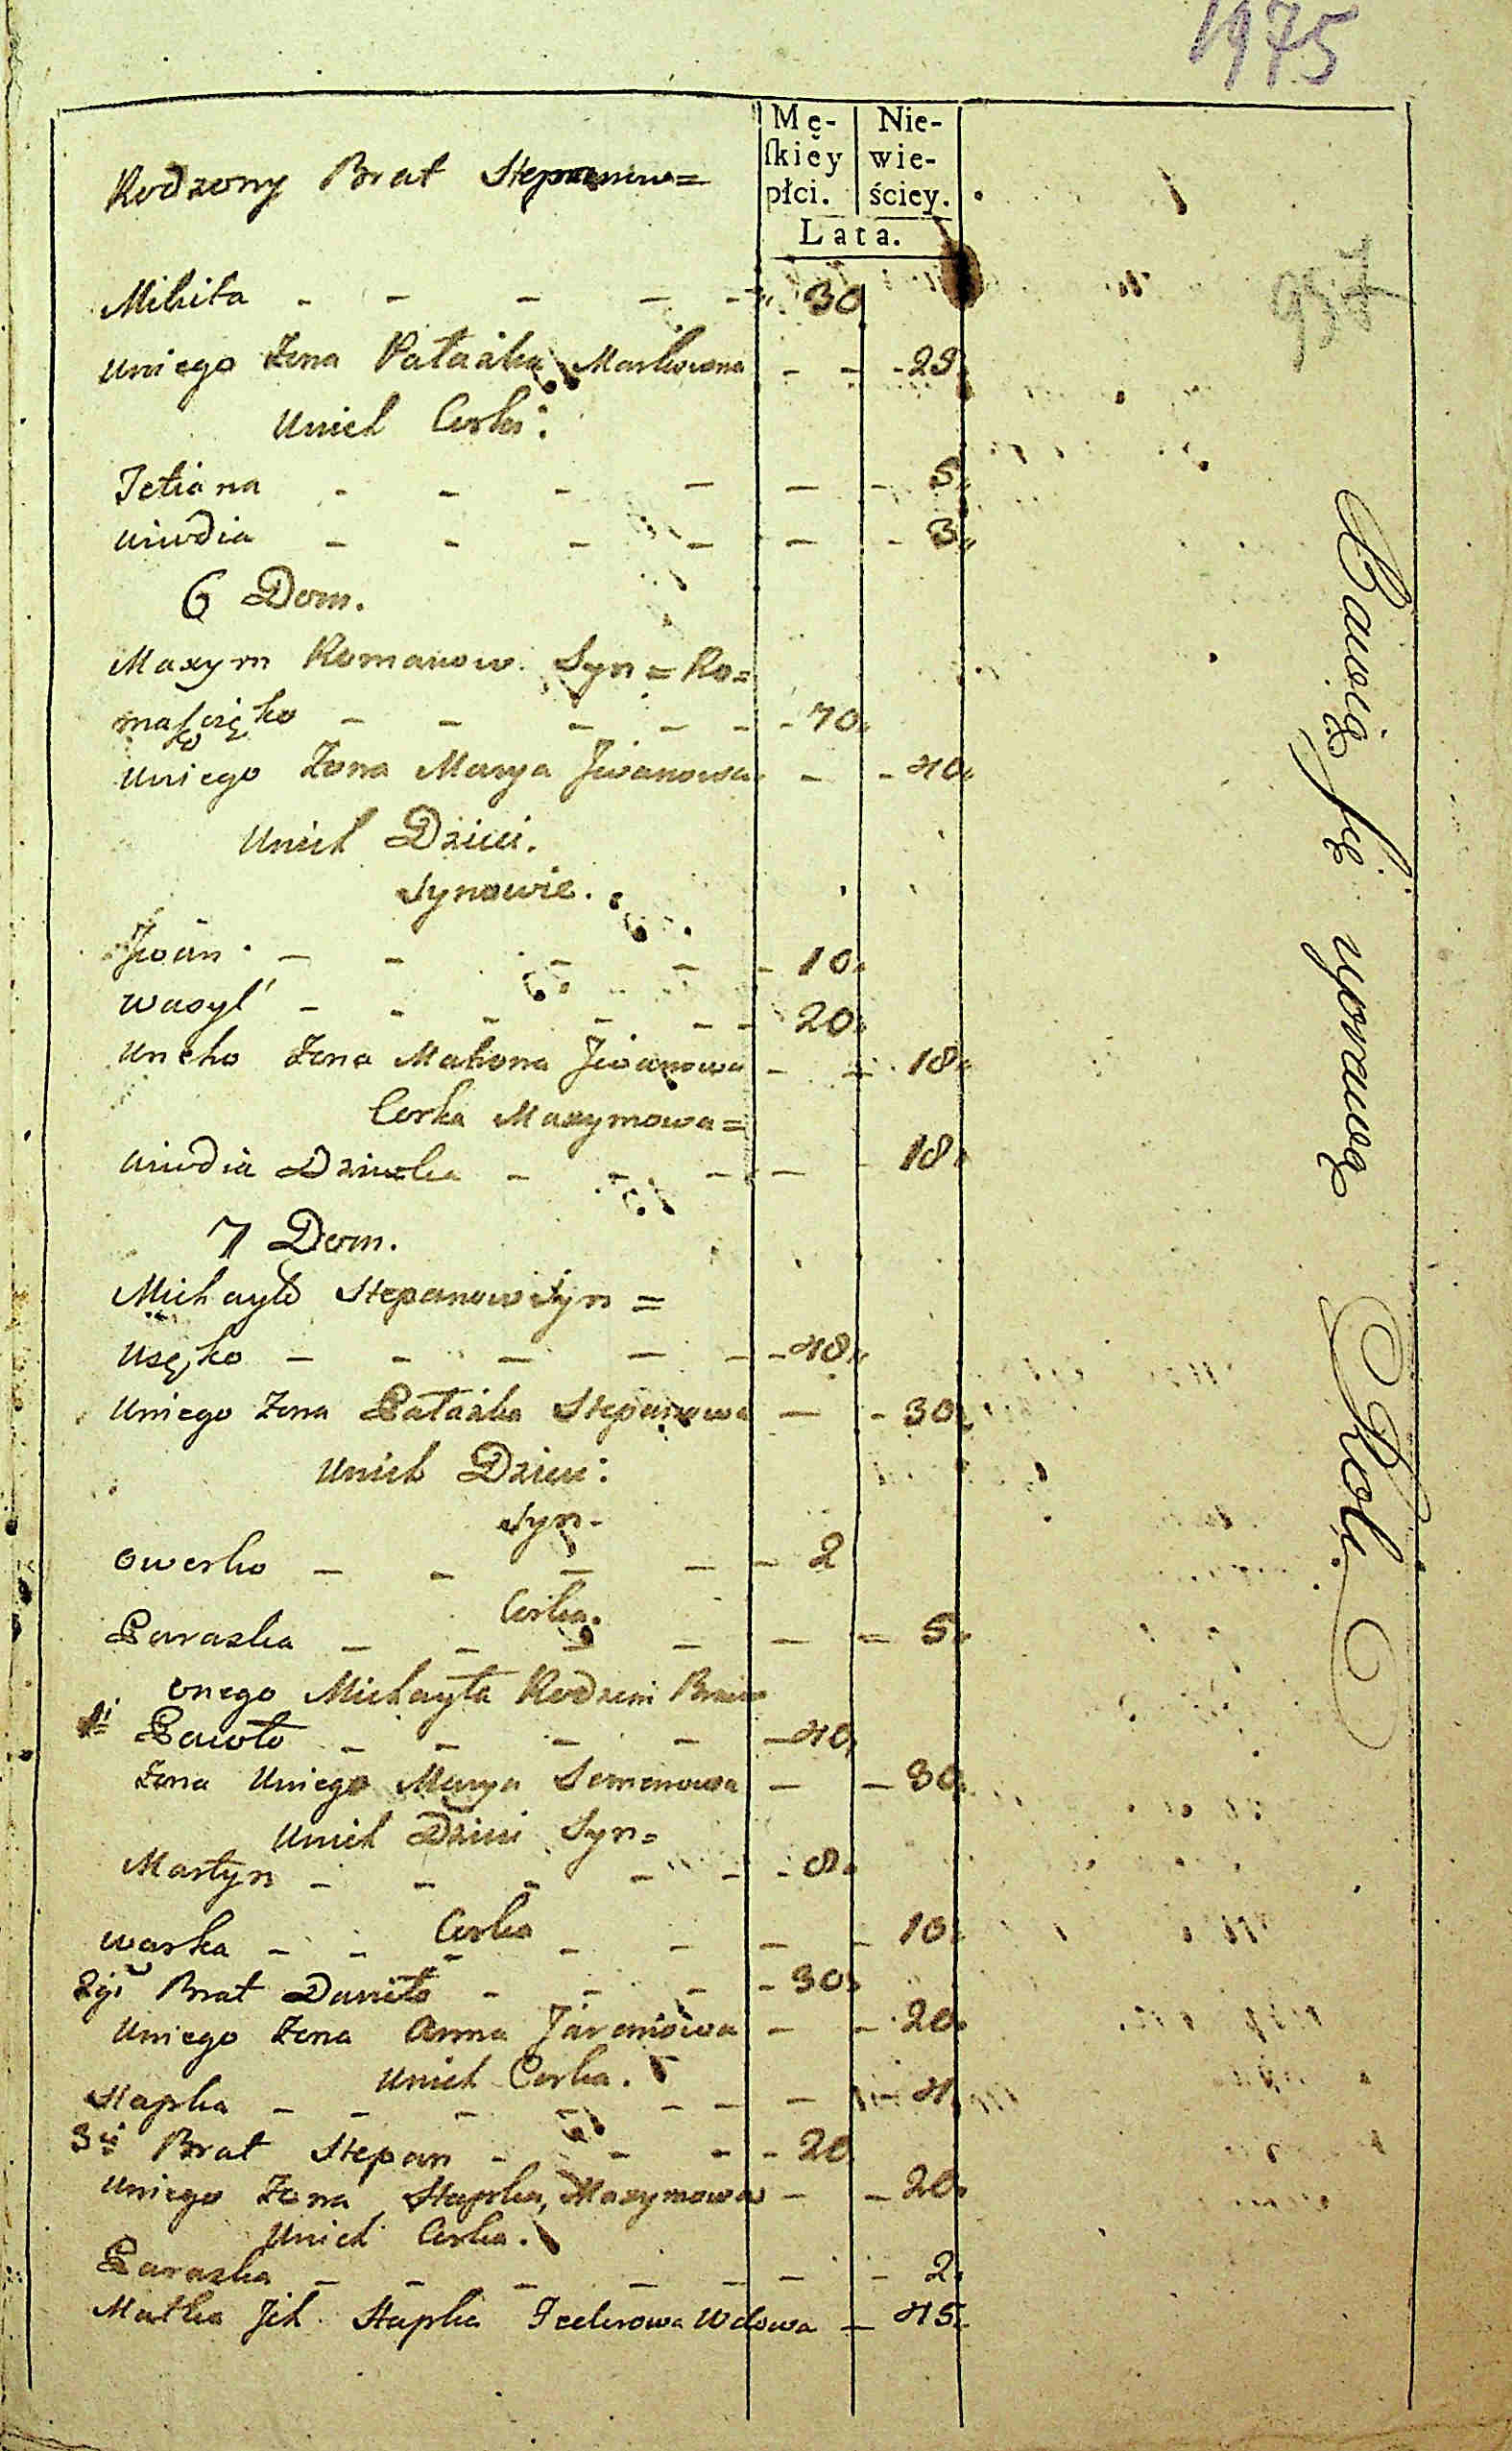 1975
Mę-
ſkiey
płci.
Nie-
wie-
ściey.
Lata.
Rodzony Brat =
957
Mikita - - - - - 30
Uniego Żona Pałażka Markowona - - - 29
Unich Corki:
Tetiana - - - - - - 5
Awdia - - - - - - 3
6 Dom.
Maxym Romanow Syn = Ro=
- - - - - - 70
Uniego Żona Marya Jwanowa - - 40
Unich Dzieci.
Synowie.
Jwan - - - - - 10
Wasyl - - - - - - 20
Uneho Żona Matrona Jwanowa - - 18
Corka Maxymowa=
Awdia Dziewka - - - - - 18
7 Dom.
Michayło Stepanow Syn =
Usęko - - - - - - 48
Uniego Żona Pałażka Stepanowa - - 30
Unich Dzieci:
Syn-
Owerko - - - - - 2
Corka.
Paraska - - - - - = 5
onego Michayła Rodzeni Bracia
1i Pawło - - - - - 40
Żona Uniego Marya Semenowa - - 30
Unich Dzieci Syn=
Martyn - - - - - - 8
Corka
Warka - - - - - - - 10
2gi Brat Daniło - - - - 30
Uniego Żona Anna Jaremowa - - 20
Unich Corka.
Hapka - - - - - - - - - 4
3i Brat Stepan - - - - 20
Uniego Żona Hapka Maxymowa - - 20
Unich Corka.
Paraska - - - - - - - 2
Matka Jch Hapka Fedorowa Wdowa - 45
Bawią się uprawą Roli.